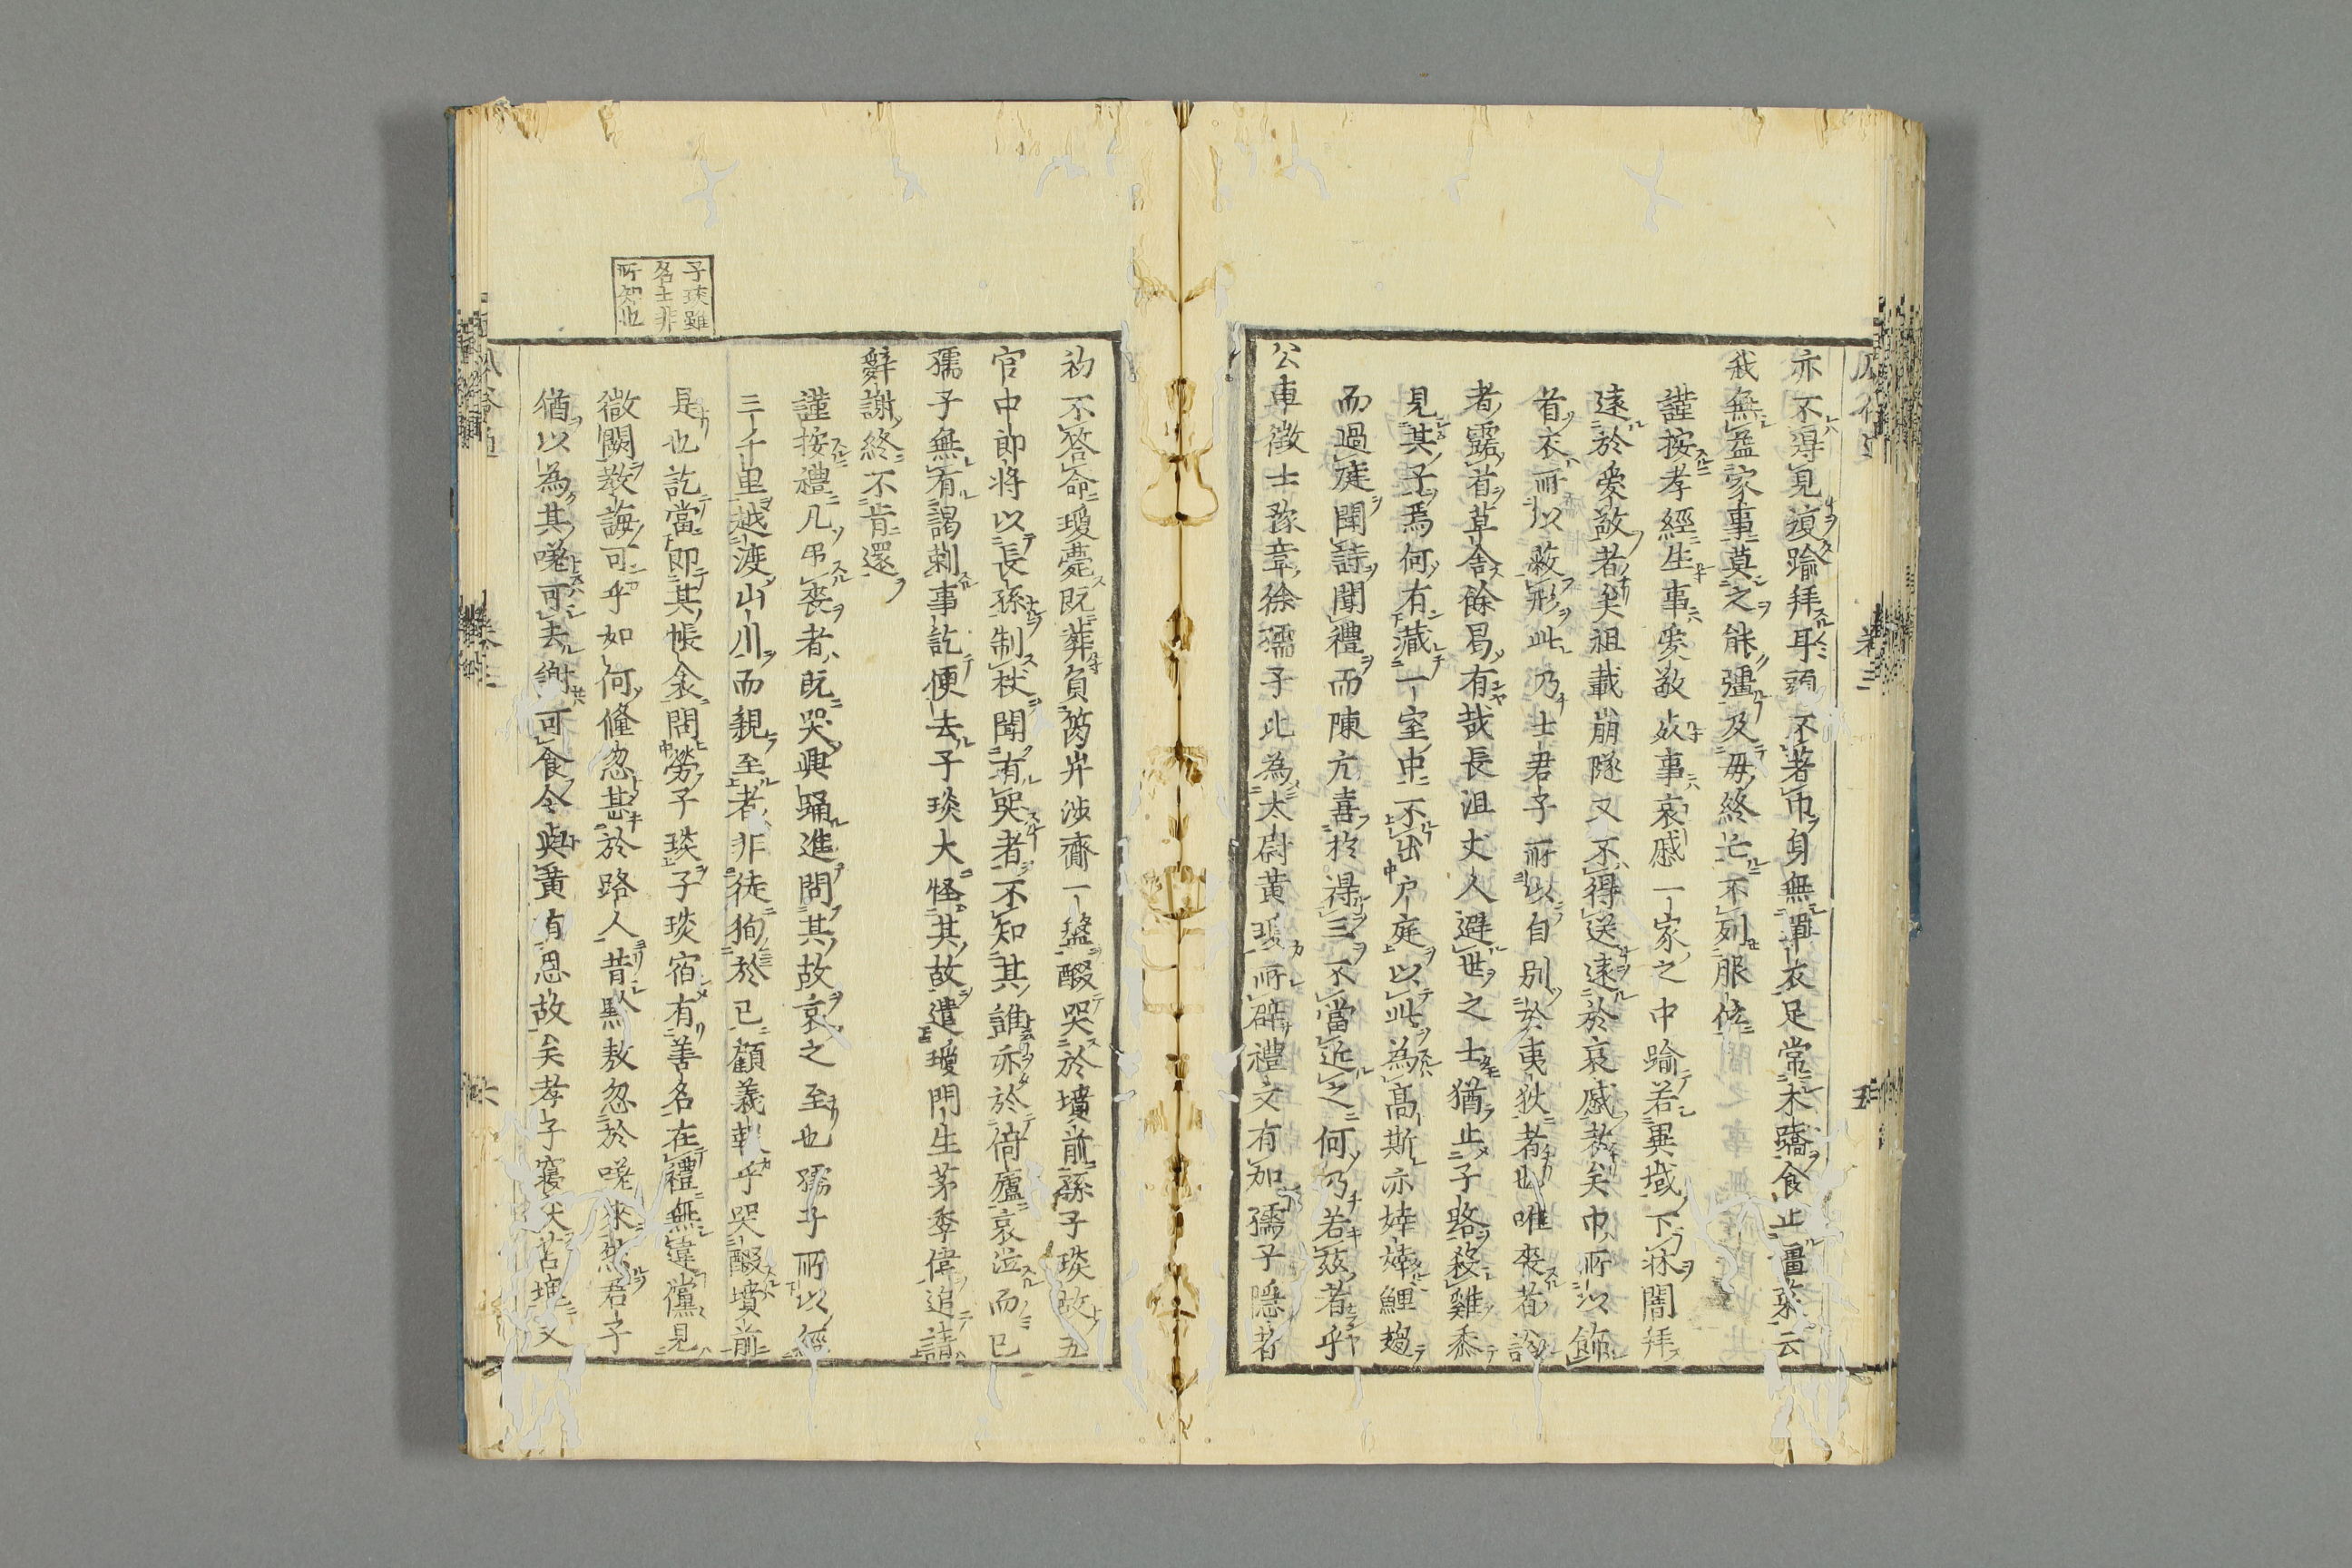 亦不得見復踰拜耳頭不著巾身無單衣足常木蹻食止薑菜云
我無益家事莫之能彊及毋終亡不列服位
謹按孝經生事愛敬死事哀慼一家之中踰若異域下牀闇拜
遠於愛敬者矣祖載崩隧又不得送遠於哀慼者矣巾所以飾
首衣所以蔽形此乃士君子所以自別於夷狄者也唯喪者訟
者露首草舍餘曷有哉長沮丈人避世之士猶止子路殺雞黍
見其子焉何有藏一室中不出戶庭以此為高斯亦婞婞鯉趨
而過庭聞詩聞禮而陳亢喜於得三不當近之何乃若茲者乎
公車徵士豫章徐孺子比為太尉黃瓊所辟禮文有加孺子隱者
初不答命瓊薨既葬負笈井涉齎一盤醊哭於墳前孫子琰故五
官中郎將以長孫制杖聞有哭者不知其誰亦於倚廬哀泣而已
孺子無有謁刺事訖便去子琰大怪其故遣瓊門生茅季偉追請
辭謝終不肯還
謹按禮凡弔喪者既哭興踊進問其故哀之至也孺子所以經
三千里越渡山川而親至者非徒徇於己顧義報乎哭醊墳前
是也訖當即其帳衾問勞子琰子琰宿有善名在禮無違儻見
微闕教誨可乎如何儵忽甚於路人昔黔敖忽於嗟來然君子
猶以為其嗟可去謝可食今與黃有恩故矣孝子寢伏苫塊又
子琰雖
名士非
所知也
卷三
五